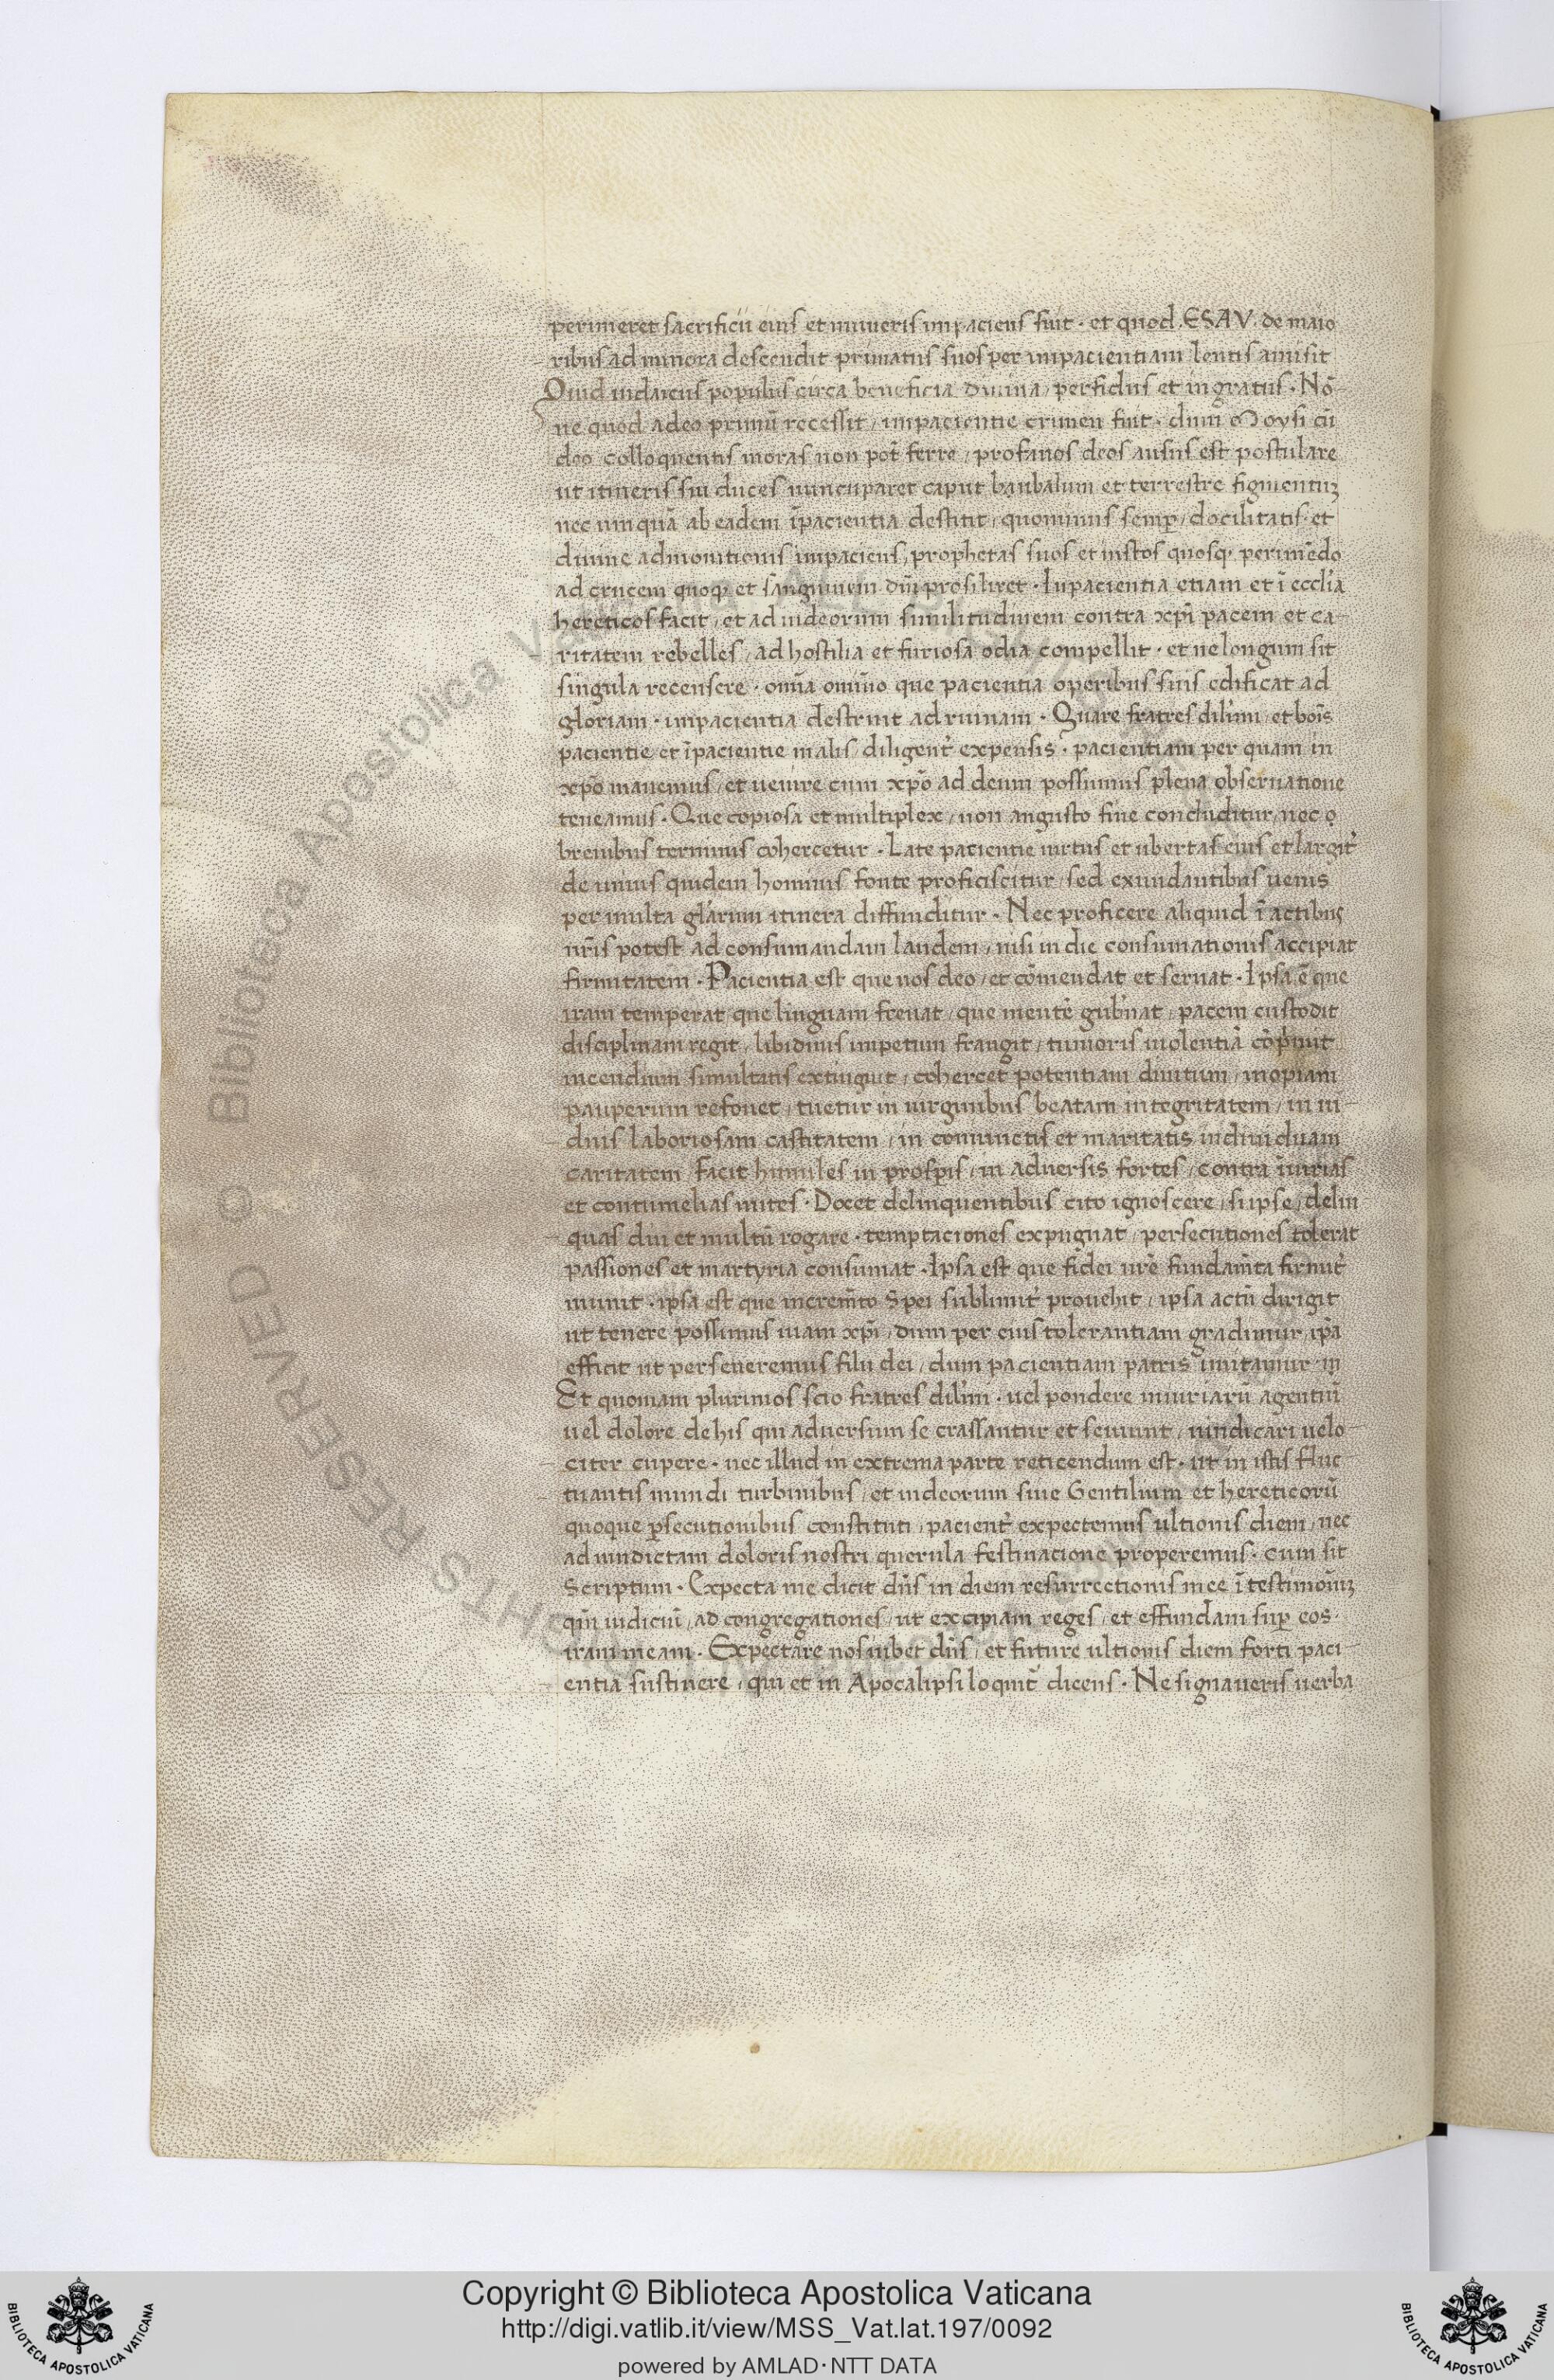 perimeret sacrificii eius et muneris impaciens fuit · et quod · ESAV · de maio
ribus ad minora descendit primatus suos per impacientiam lentis amisit
Quid iudaicus populus circa beneficia diuina / perfidus et ingratus · Nō
ne quod a deo primū recessit / impacientie crimen fuit · dum Moysi cū
deo colloquentis moras non pot̄ ferre / profanos deos ausus est postulare
ut itineris sui duces nuncuparet caput bubalum et terrestre figmentuꝫ
nec umquā ab eadem īpacientia destitit / quominus semꝑ / docilitatis · et
diuine admonitionis impaciens / prophetas suos et iustos quosqꝫ perimēdo
ad crucem quoqꝫ et sanguinem dn̄i prosiliret · Inpacientia etiam et ī eccl̄ia
hereticos facit / et ad iudeorum similitudinem contra xp̄i pacem et ca
ritatem rebelles / ad hostilia et furiosa odia compellit · et ne longum sit
singula recensere · om̄ia omīno que pacientia operibus suis edificat ad
gloriam · impacientia destruit ad ruinam · Quare fratres dil̄mi / et boīs
pacientie et īpacientie malis / diligent̄ expensis · pacientiam per quam in
xp̄o manemus / et uenire cum xp̄o ad deum possumus plena obseruatione
teneamus · Que copiosa et multiplex / non angusto fine concluditur / nec
breuibus terminis cohercetur · Late pacientie uirtus et ubertas eius et largit̄
de unius quidem hominis fonte proficiscitur / sed exundantibus uenis
per multa gl̄arum itinera diffunditur · Nec proficere aliquid ī actibus
nr̄is potest ad consumandam laudem / nisi in die consumationis accipiat
firmitatem · Pacientia est que nos deo / et cōmendat et seruat · Ipsa ē que
iram temperat que linguam frenat / que mentē gub̄nat / pacem custodit
disciplinam regit / libidinis impetum frangit / tumoris uiolentiā cōp̄mit
incendium simultatis extinguit / cohercet potentiam diuitum / inopiam
pauperum refouet / tuetur in uirginibus beatam integritatem / in ui
duis laboriosam castitatem / in coniunctis et maritatis indiuiduam
caritatem Facit humiles in prosꝑis / in aduersis fortes / contra iniurias
et contumelias mites · Docet delinquentibus cito ignoscere / si ipse / delin
quas diu et multū rogare · temptaciones expugnat / persecutiones tolerat
passiones et martyria consumat · Ipsa est que fidei nr̄e fundam̄ta firmit̄
munit · ipsa est que increm̄to Spei sublimit̄ prouehit / ipsa actū dirigit
ut tenere possimus uiam xp̄i / dum per eius tolerantiam gradimur / ip̄a
efficit ut perseueremus filii dei / dum pacientiam patris imitamur
Et quoniam plurimos scio fratres dil̄mi · uel pondere iniuriarū agentiū
uel dolore de his qui aduersum se crassantur et seuiunt / uindicari uelo
citer cupere · nec illud in extrema parte reticendum est · ut in istis fluc
tuantis mundi turbinibus / et iudeorum siue Gentilium et hereticorū
quoque ꝑsecutionibus constituti / pacient̄ expectemus ultionis diem / nec
ad uindictam doloris nostri querula festinacione properemus · cum sit
Scriptum · Expecta me dicit dn̄s in diem resurrectionis mee ī testimoīuꝫ
qm̄ iudiciū / ad congregationes / ut excipiam reges / et effundam suꝑ eos
iram meam · Expectare nos iubet dn̄s / et future ultionis diem forti paci
entia sustinere / qui et in Apocalipsi loquit̄ dicens · Ne signaueris uerba
Copyright © Biblioteca Apostolica Vaticana
http://digi.vatlib.it/view/MSS_Vat.lat.197/0092
powered by AMLAD·NTT DATA